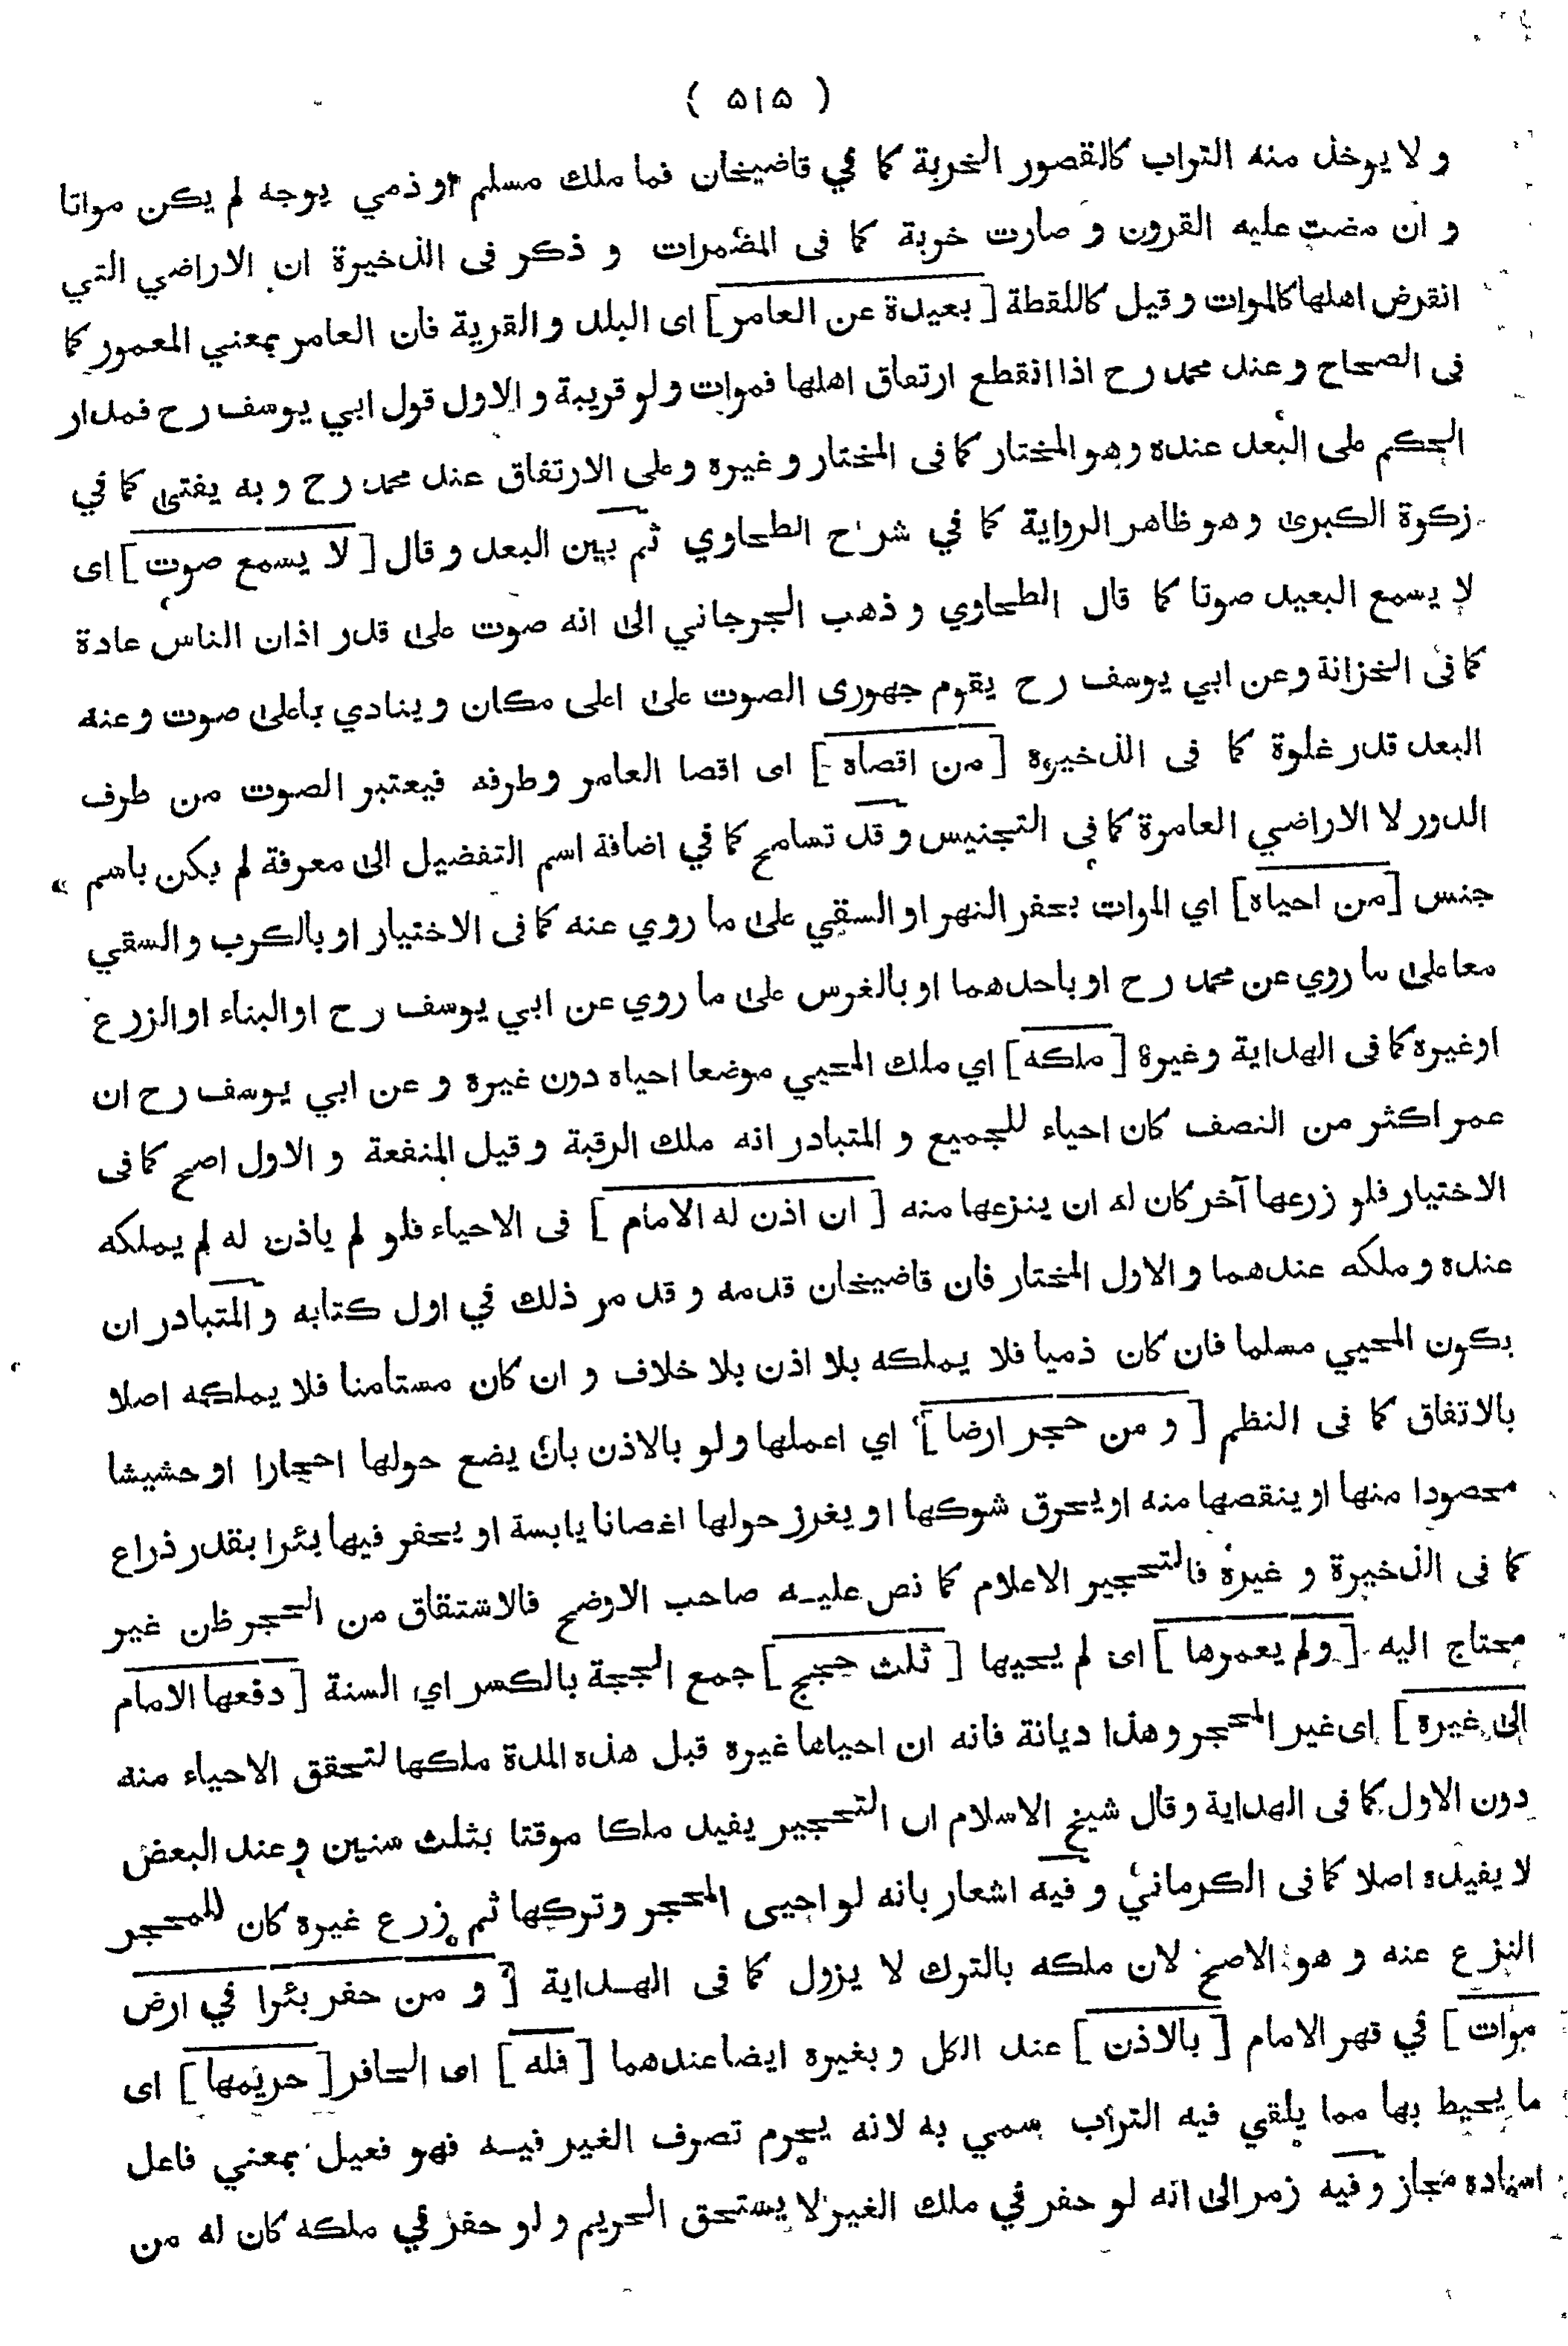 ( ۵۱۵ )
و لا يوخذ منه التراب كالقصور الخربة كما في قاضيخان فما ملك مسلم او ذمي بوجه لم يكن مواتا
و ان مضت عليه القرون و صارت خربة كما فى المضمرات و ذكر فى الذخيرة ان الاراضي التي
انقرض اهلها كالموات و قيل كاللقطة [ بعيدة عن العامر ] اى البلد و القرية فان العامر بمعني المعمور كما
فى الصحاح و عند محمد رح اذا انقطع ارتفاق اهلها فموات ولو قريبة و الاول قول ابي يوسف رح فمدار
الحكم على البعد عنده و هو المختار كما فى المختار و غيره و على الارتفاق عند محمد رح و به يفتى كما في
زكوة الكبرى و هو ظاهر الرواية كما في شرح الطحاوي ثم بين البعد و قال [ لا يسمع صوت ] اى
لا يسمع البعيد صوتا كما قال الطحاوي و ذهب الجرجاني الى انه صوت على قدر اذان الناس عادة
كما فى الخزانة و عن ابي يوسف رح يقوم جهورى الصوت على اعلى مكان و ينادي باعلى صوت و عنه
البعد قدر غلوة كما فى الذخيره [ من اقصاه ] اى اقصا العامر و طرفه فيعتبر الصوت من طرف
الدور لا الاراضي العامرة كما فى التجنيس و قد تسامح كما في اضافة اسم التفضيل الى معرفة لم يكن باسم
جنس [ من احياه ] اي الموات بحفر النهر او السقي على ما روي عنه كما فى الاختيار او بالكرب و السقي
معا على ما روي عن محمد رح او باحدهما او بالغرس على ما روي عن ابي يوسف رح او البناء او الزرع
او غيره كما فى الهداية و غيرة [ ملكه ] اي ملك المحيي موضعا احياه دون غيره و عن ابي يوسف رح ان
عمر اكثر من النصف كان احياء للجميع و المتبادر انه ملك الرقبة و قيل المنفعة و الاول اصح كما فى
الاختيار فلو زرعها آخر كان له ان ينزعها منه [ ان اذن له الامام ] فى الاحياء فلو لم ياذن له لم يملكه
عنده و ملكه عندهما و الاول المختار فان قاضيخان قدمه و قد مر ذلك في اول كتابه و المتبادر ان
يكون المحيي مسلما فان كان ذميا فلا يملكه بلا اذن بلا خلاف و ان كان مستامنا فلا يملكه اصلا
بالاتفاق كما فى النظم [ و من حجر ارضا ] اي اعملها و لو بالاذن بان يضع حولها احجارا او حشيشا
محصودا منها او ينقصها منه او يحرق شوكها او يغرز حولها اغصانا يابسة او يحفر فيها بئرا بقدر ذراع
كما فى الذخيرة و غيرة فالتحجير الاعلام كما نص عليه صاحب الاوضح فالاشتقاق من الحجر ظن غير
محتاج اليه [ ولم يعمرها ] اى لم يحيها [ ثلث حجج ] جمع الحجة بالكسر اي السنة [ دفعها الامام
الى غيره ] اى غير المحجر و هذا ديانة فانه ان احياها غيره قبل هذه المدة ملكها لتحقق الاحياء منه
دون الاول كما فى الهداية و قال شيخ الاسلام ان التحجير يفيد ملكا موقتا بثلث سنين و عند البعض
لا يفيده اصلا كما فى الكرماني و فيه اشعار بانه لو احيى المحجر و تركها ثم زرع غيره كان للمحجر
النزع عنه و هو الاصح لان ملكه بالترك لا يزول كما فى الهداية [ و من حفر بئرا في ارض
موات ] في قهر الامام [ بالاذن ] عند الكل و بغيره ايضا عندهما [ فله ] اى الحافر [ حريمها ] اى
ما يحيط بها مما يلقي فيه التراب سمي به لانه يحرم تصرف الغير فيه فهو فعيل بمعني فاعل
اسناده مجاز و فيه زمر الى انه لو حفر في ملك الغير لا يستحق الحريم و لو حفر في ملكه كان له من